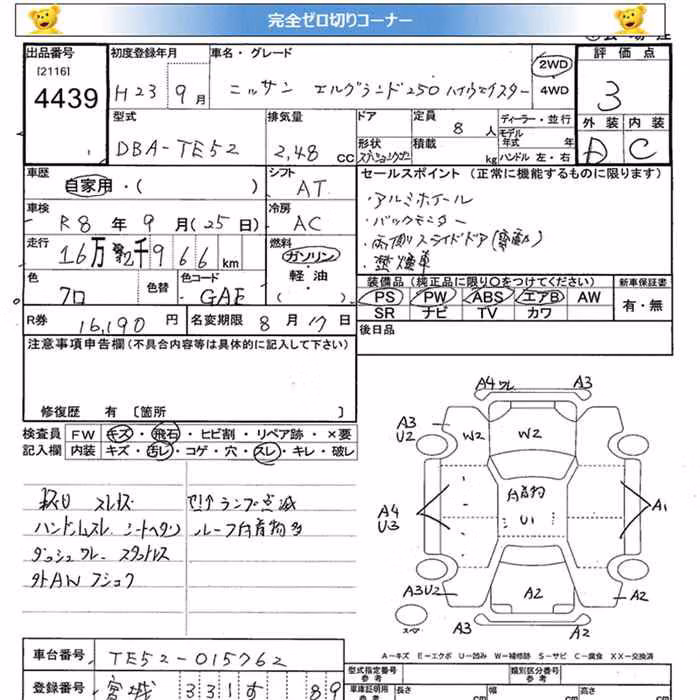 完全ゼロ切りコーナー
出品番号
[2116]
4439
初度登録年月
H23 9月
車名・グレード
ニッサン エルグランド250 ハイウェイスター
2WD
4WD
評価点
3
外装 内装
D C
型式
DBA-TE52
排気量
2.48 cc
ドア
形状
定員
8 人
積載
kg
ディーラー・並行
モデル
年式 年
ハンドル 左・右
車歴
自家用・( )
シフト
AT
車検
R8年9月(25日)
冷房
AC
走行
16万 2千966km
燃料
ガソリン
軽・油
( )
色
クロ
色替
色コード
GAE
R券 16,190円
名変期限 8月17日
セールスポイント (正常に機能するものに限ります)
・アルミホイール
・バックモニター
・両側スライドドア(電動)
・禁煙車
装備品 (純正品に限り〇をつけてください)
新車保証書
PS PW ABS エアB AW
SR ナビ TV カワ
有・無
後日品
注意事項申告欄 (不具合内容等は具体的に記入して下さい)
修復歴 有 〔箇所 〕
検査員
記入欄
FW キズ・飛石・ヒビ割・リペア跡・×要
内装 キズ・汚レ・コゲ・穴・スレ・キレ・破レ
スレキズ
ハンドルスレ シートヘタリ
ダッシュワレ
外AWフショク
ランプ点滅
ルーフ白産物多
A4ワレ A3
A3
U2
W2
W2
A4
U3
白産物
U1
A1
A3U2
A2
A2
A3
A2
スペア
A-キズ E-エクボ U-凹み W-補修跡 S-サビ C-腐食 XX-交換済
車台番号
TE52-015762
登録番号
宮城 331 す 89
型式指定番号
参考
類別区分番号
参考
車庫証明用
参考
長さ
cm
幅
cm
高さ
cm